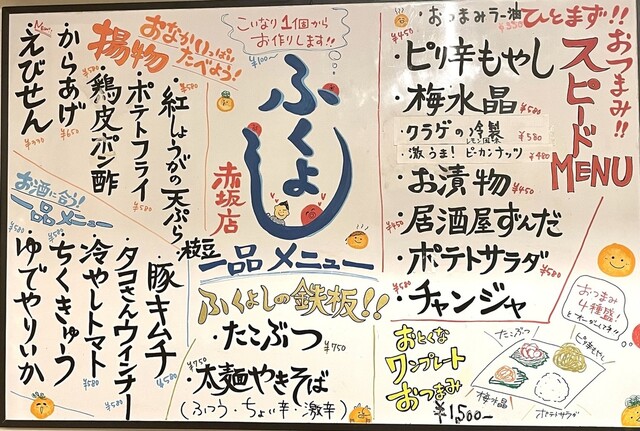 おつまみ!!
ひとまず!!
スピード
MENU
・おつまみラー油 ¥350
・ピリ辛もやし ¥450
・梅水晶 ¥580
・クラゲの冷製 ¥580
レモン風味
・激うま! ピーカンナッツ ¥480
・お漬物 ¥450
・居酒屋ずんだ ¥450
・ポテトサラダ ¥580
・チャンジャ ¥580
おつまみ
4種盛!
とオーダーして下さい!
おとくな
ワンプレート
おつまみ
¥1,500-
たこぶつ
ピリ辛もやし
梅水晶
ポテトサラダ
こいなり1個から
お作りします!!
¥100~
ふくよし
赤坂店
一品メニュー
ふくよしの鉄板!!
・たこぶつ ¥750
・太麺やきそば ¥750
(ふつう・ちょい辛・激辛)
揚物
おなかいっぱい
たべよう!
・紅しょうがの天ぷら
・ポテトフライ ¥580
・鶏皮ポン酢 ¥580
・からあげ ¥650
・えびせん
お酒に合う!
一品メニュー
・枝豆
・豚キムチ
・タコさんウィンナー ¥580
・冷やしトマト ¥580
・ちくきゅう
・ゆでやりいか